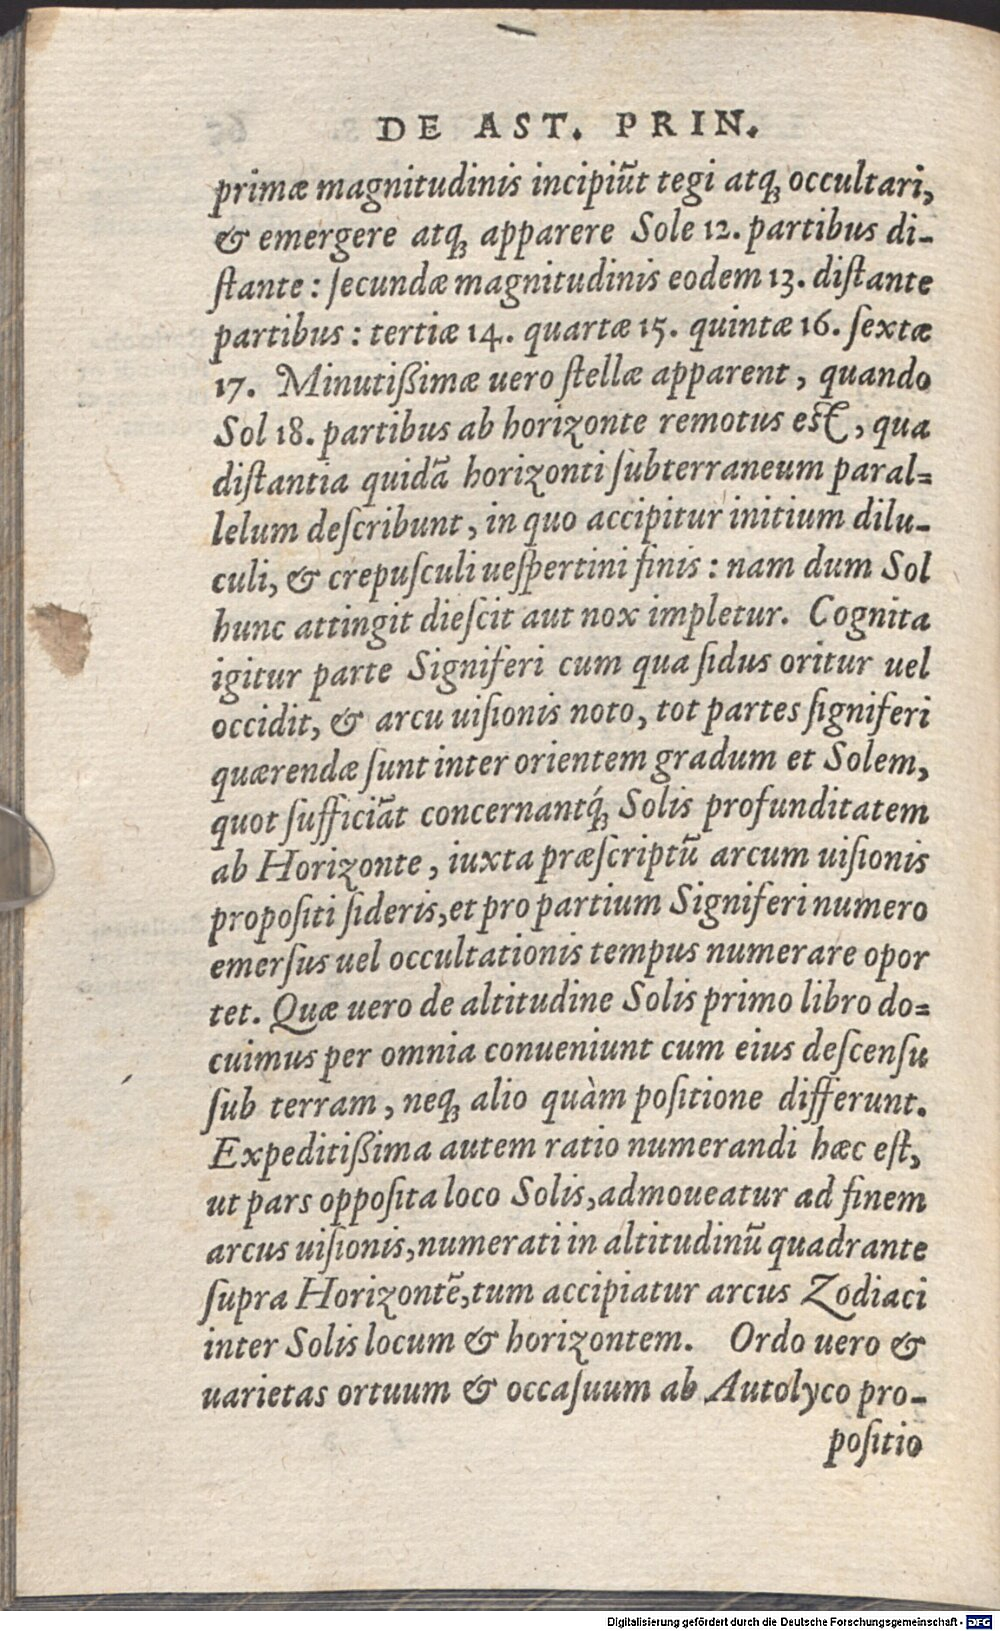 DE AST. PRIN.
primæ magnitudinis incipiũt tegi atq; occultari,
& emergere atq; apparere Sole 12. partibus di-
ſtante : ſecundæ magnitudinis eodem 13. diſtante
partibus : tertiæ 14. quartæ 15. quintæ 16. ſextæ
17. Minutißimæ uero ſtellæ apparent, quando
Sol 18. partibus ab horizonte remotus est, qua
diſtantia quidã horizonti ſubterraneum paral=
lelum deſcribunt, in quo accipitur initium dilu-
culi, & crepuſculi ueſpertini finis : nam dum Sol
hunc attingit dieſcit aut nox impletur. Cognita
igitur parte Signiferi cum qua ſidus oritur uel
occidit, & arcu uiſionis noto, tot partes ſigniferi
quærendæ ſunt inter orientem gradum et Solem,
quot ſufficiãt concernantq́; Solis profunditatem
ab Horizonte, iuxta præſcriptũ arcum uiſionis
propoſiti ſideris, et pro partium Signiferi numero
emerſus uel occultationis tempus numerare opor
tet. Quæ uero de altitudine Solis primo libro do=
cuimus per omnia conueniunt cum eius deſcenſu
ſub terram, neq; alio quàm poſitione differunt.
Expeditißima autem ratio numerandi hæc eſt,
ut pars oppoſita loco Solis, admoueatur ad finem
arcus uiſionis, numerati in altitudinũ quadrante
ſupra Horizontẽ, tum accipiatur arcus Zodiaci
inter Solis locum & horizontem. Ordo uero &
uarietas ortuum & occaſuum ab Autolyco pro-
poſitio
Digitalisierung gefördert durch die Deutsche Forschungsgemeinschaft - DFG